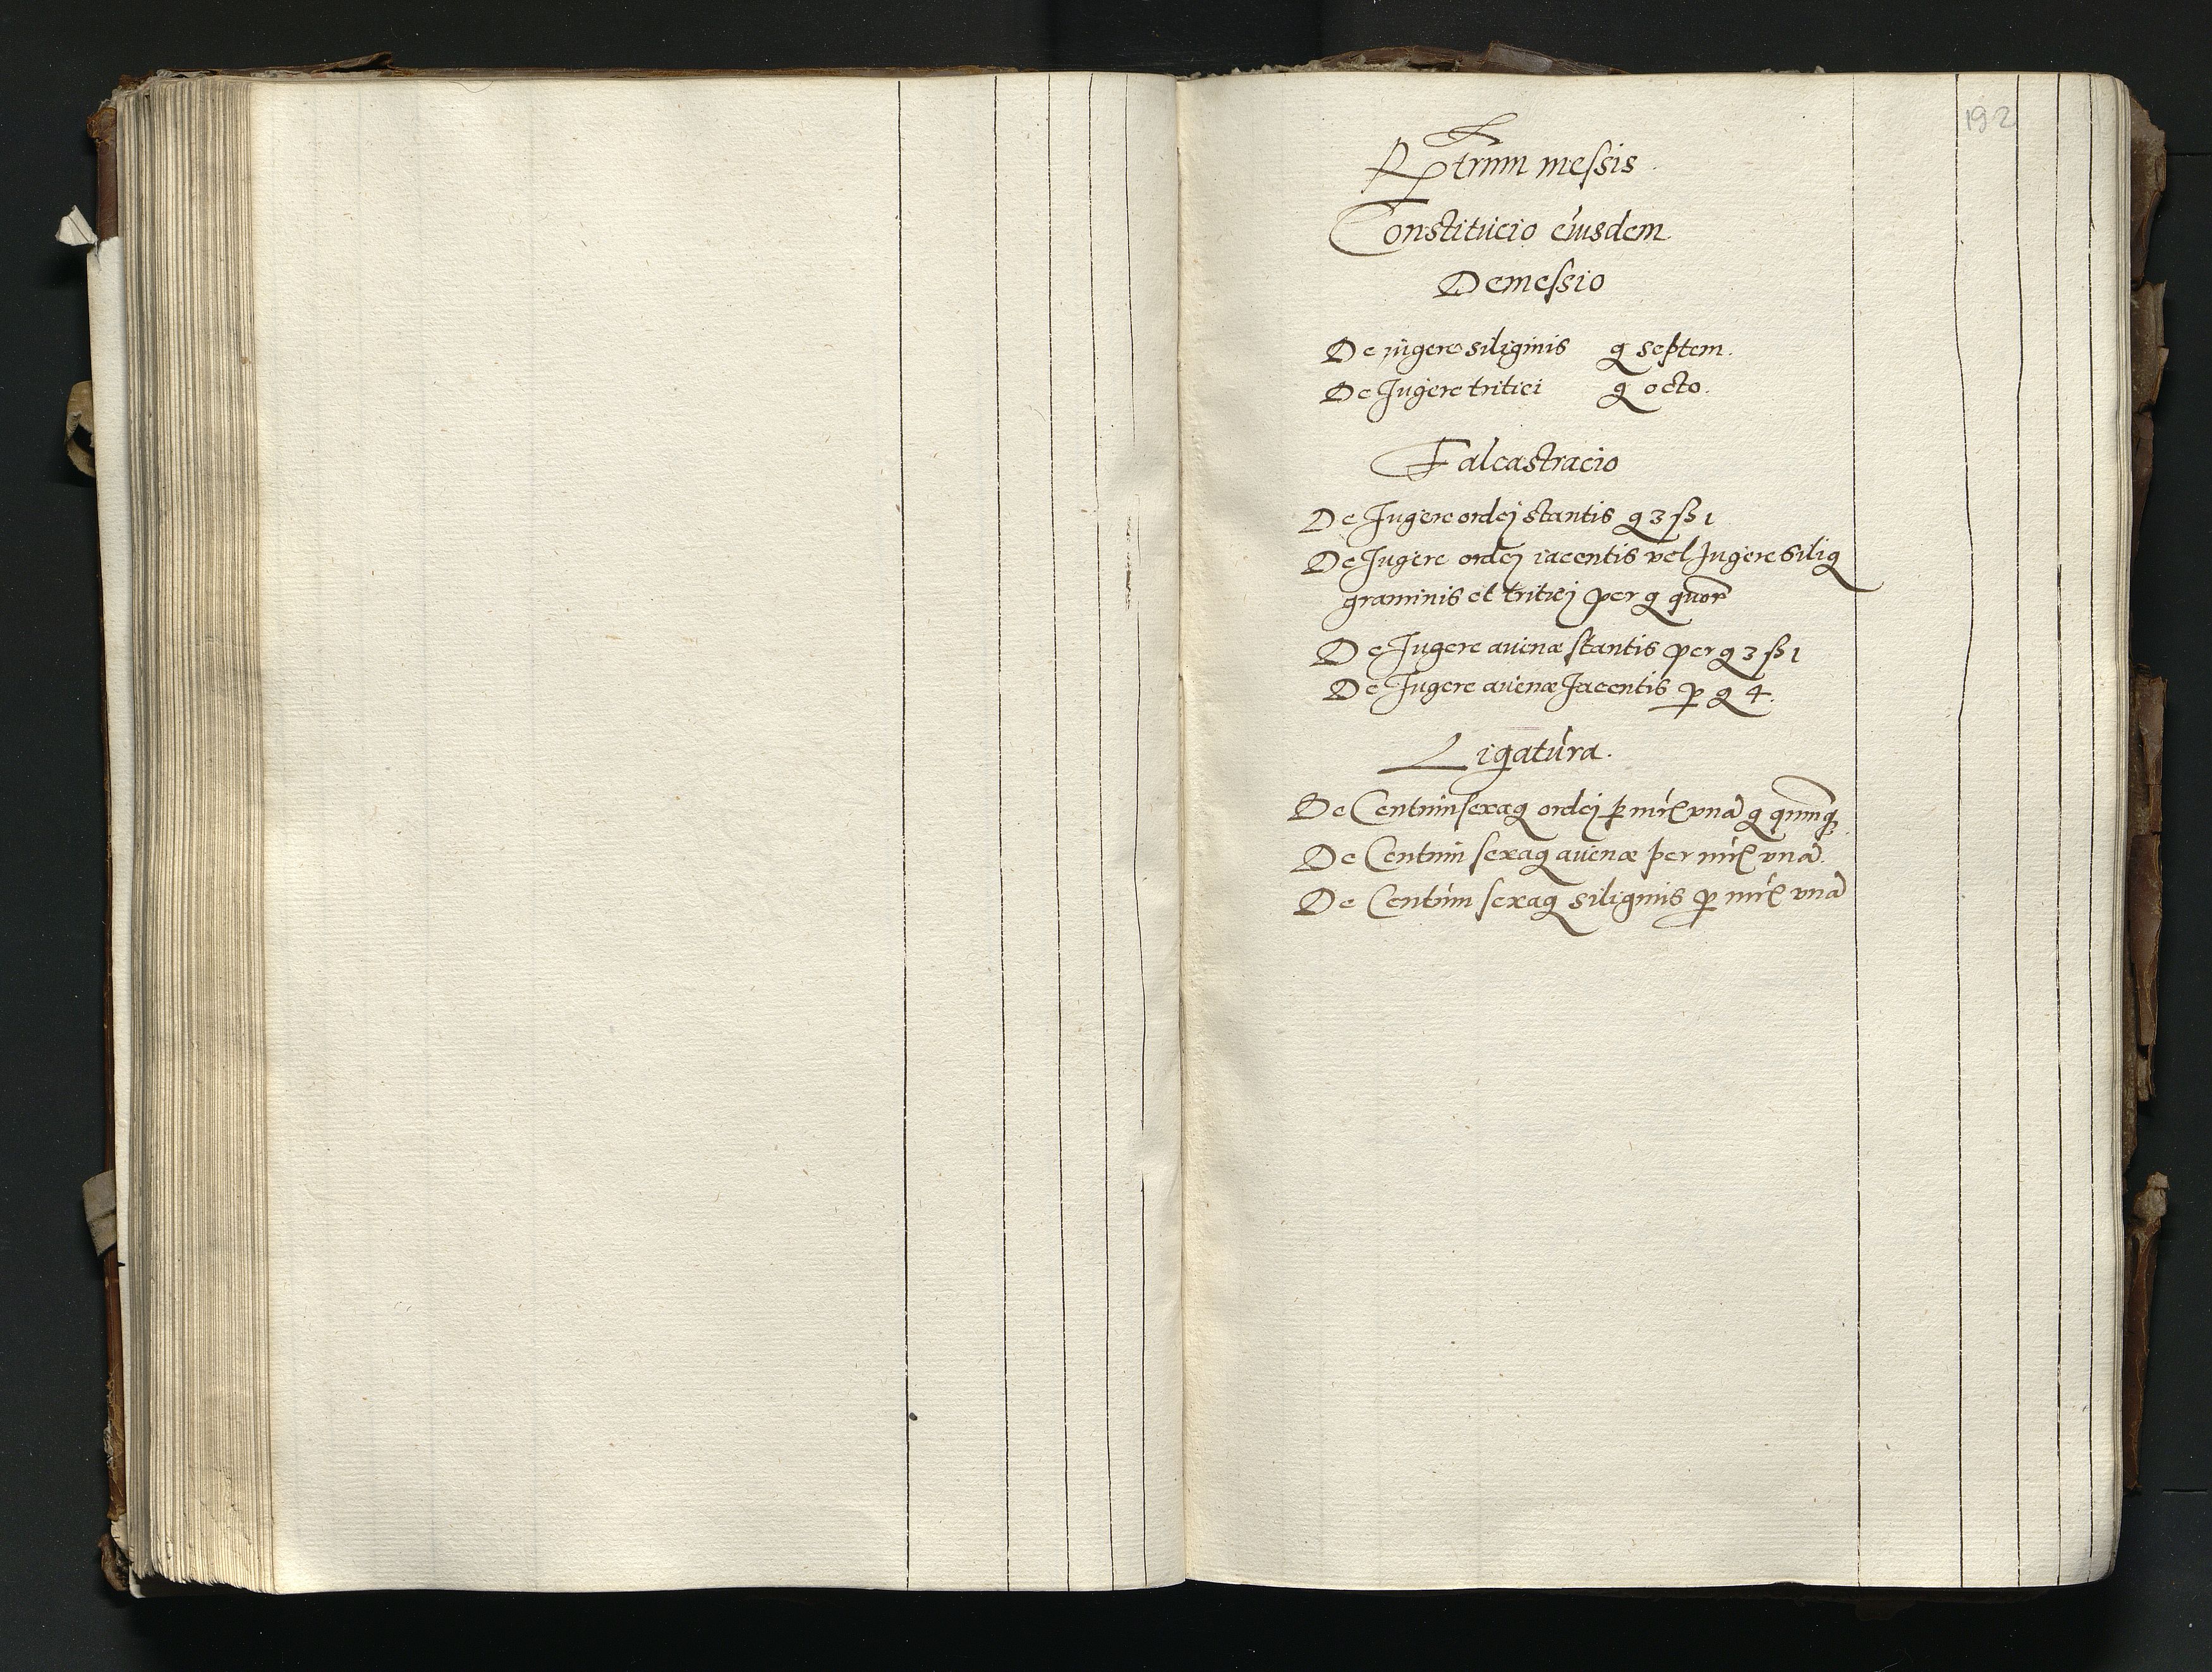 192
Rptrum messis
Constitucio eiusdem
Demessio
De jugere siliginis q septem.
De Jugere tritici q octo.
Falcastracio
De Jugere ordej stantis q 3 ß 1
De Jugere ordej iacentis vel Jugere silig
graminis et triticj per q quor
De Jugere auenæ stantis per q 3 ß 1
De Jugere auenæ Jacentis p q 4.
Ligatura.
De Centum sexag ordej p mrc vna q quinq
De Centum sexag auenæ per mrc vna.
De Centum sexag siliginis p mrc vna